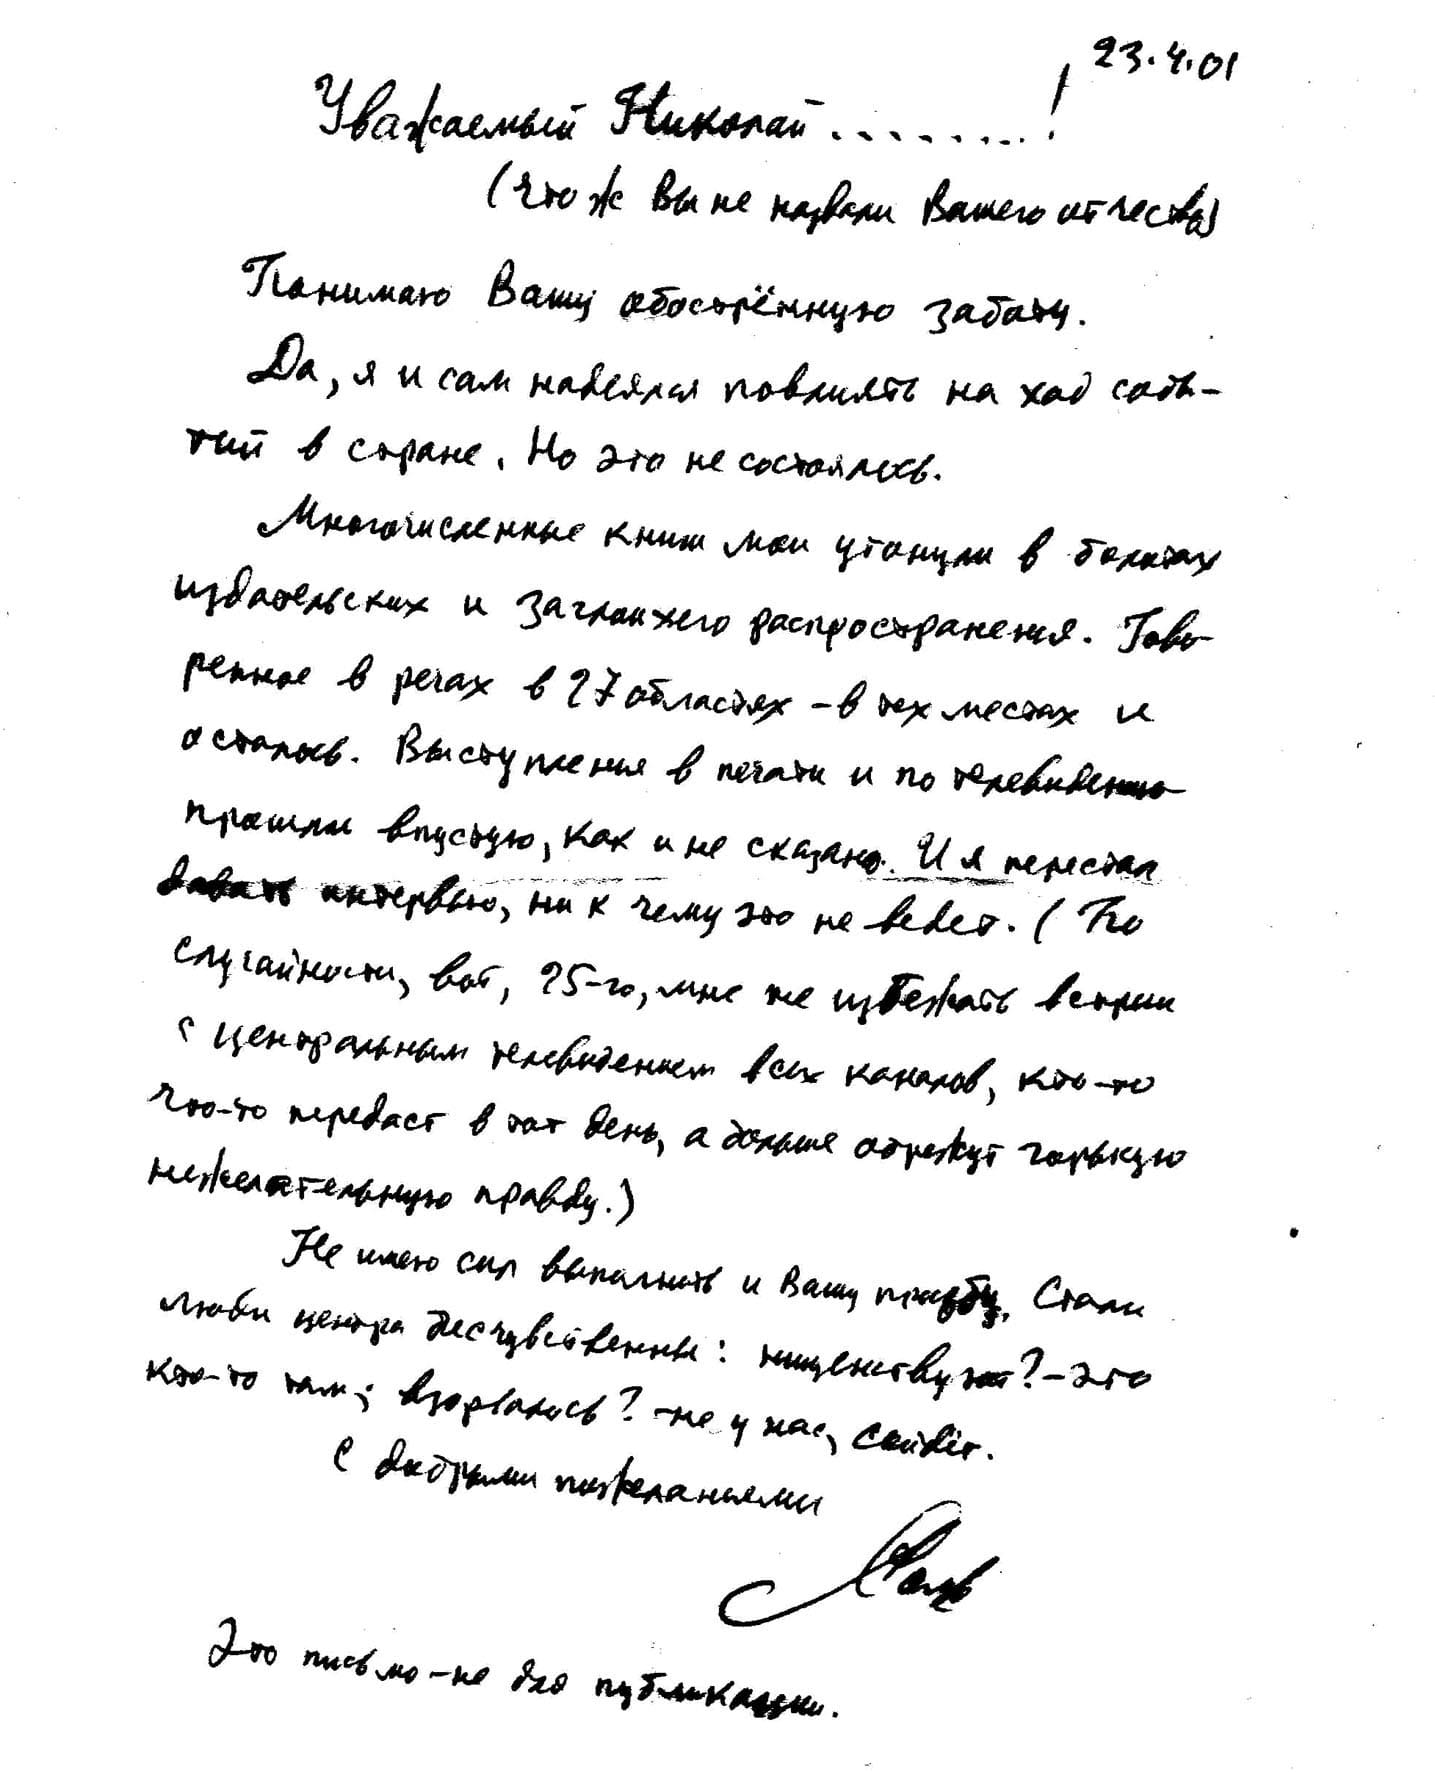 23.4.01
Уважаемый Николай ........!
(Что ж Вы не назвали Вашего отчества)
Понимаю Вашу обострённую заботу.
Да, я и сам надеялся повлиять на ход собы-
тий в стране. Но это не состоялось.
Многочисленные книги мои утонули в болотах
издательских и заглохшего распространения. Гово-
ренное в речах в 27 областях – в тех местах и
осталось. Выступления в печати и по телевидению
прошли впустую, как и не сказано. И я перестал
давать интервью, ни к чему это не ведет. (По
случайности, вот, 25-го, мне не избежать встречи
с центральным телевидением всех каналов, кто-то
что-то передаст в тот день, а дальше обрежут горькую
нежелательную правду.)
Не имею сил выполнить и Вашу просьбу. Стали
люди центра бесчувственны: нищенствуют? – это
кто-то там; взорвалось? – не у нас, сойдёт.
С добрыми пожеланиями
Это письмо – не для публикации.